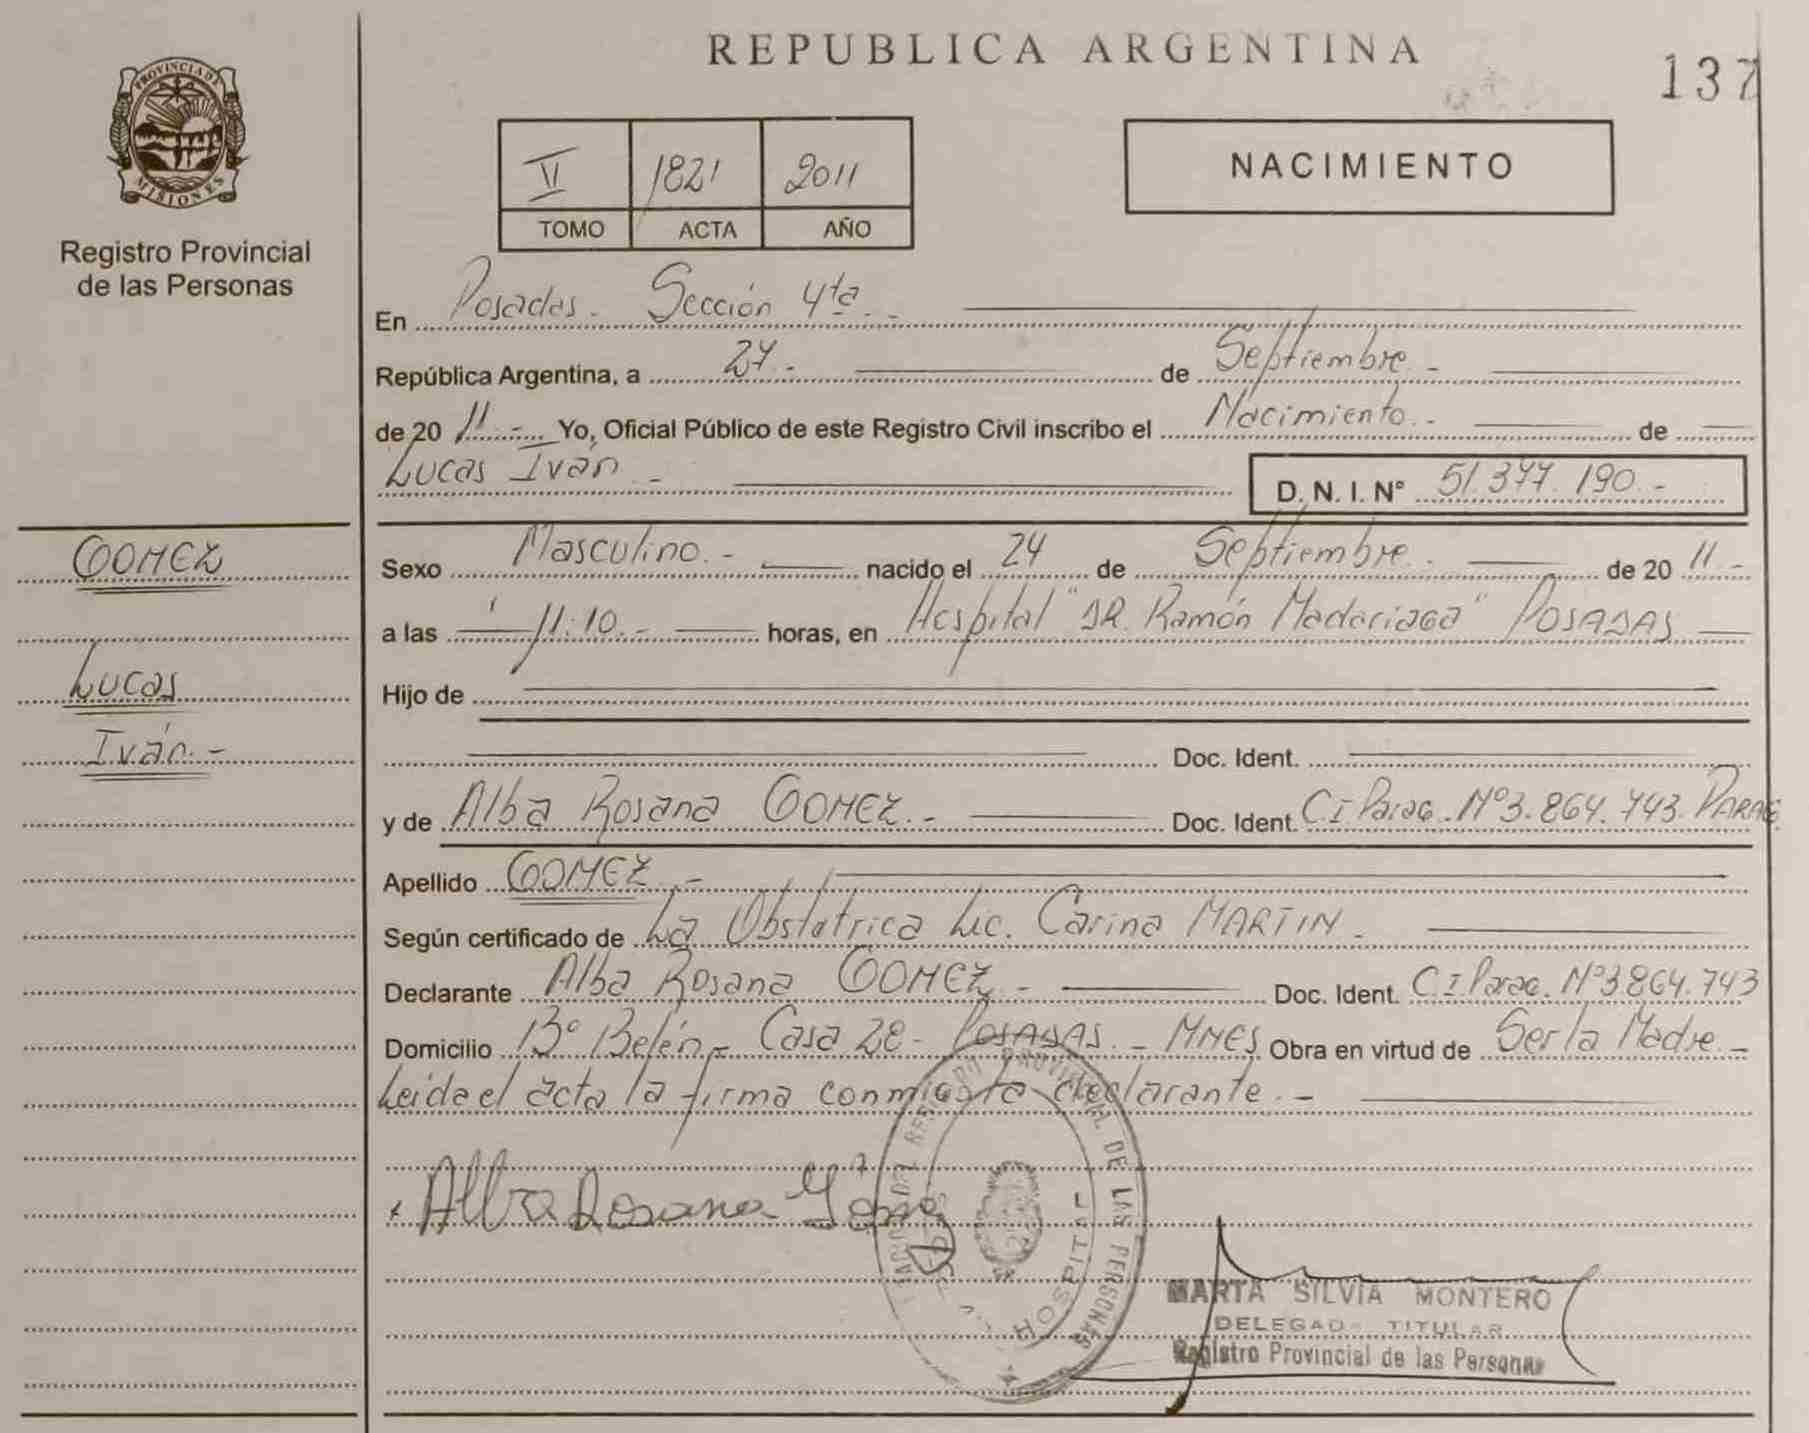 REPUBLICA ARGENTINA
137
PROVINCIA DE
MISIONES
Registro Provincial
de las Personas
II 1821 2011
TOMO ACTA AÑO
NACIMIENTO
En Posadas - Sección 4ta.-
República Argentina, a 27.- de Septiembre -
de 20 11.- Yo, Oficial Público de este Registro Civil inscribo el Nacimiento.- de
Lucas Iván.-
D. N. I. N° 51.377.190.-
GOMEZ
Lucas
Iván.-
Sexo Masculino.- nacido el 24 de Septiembre.- de 20 11.-
a las 11:10.- horas, en Hospital "DR. Ramón Madariaga" POSADAS
Hijo de
Doc. Ident.
y de Alba Rosana GOMEZ.- Doc. Ident. CI Parag. N°3.864.743. PARAG
Apellido GOMEZ.-
Según certificado de La Obstetrica Lic. Carina MARTIN.-
Declarante Alba Rosana GOMEZ - Doc. Ident. C.I Parag. N°3.864.743
Domicilio B° Belén - Casa 28 - POSADAS.- MNES Obra en virtud de Ser la Madre.-
Leida el acta la firma conmigo la declarante.-
Alba Rosana Gómez
REGISTRO PROVINCIAL DE LAS PERSONAS
HOSPITAL
MARTA SILVIA MONTERO
DELEGADA TITULAR
Registro Provincial de las Personas